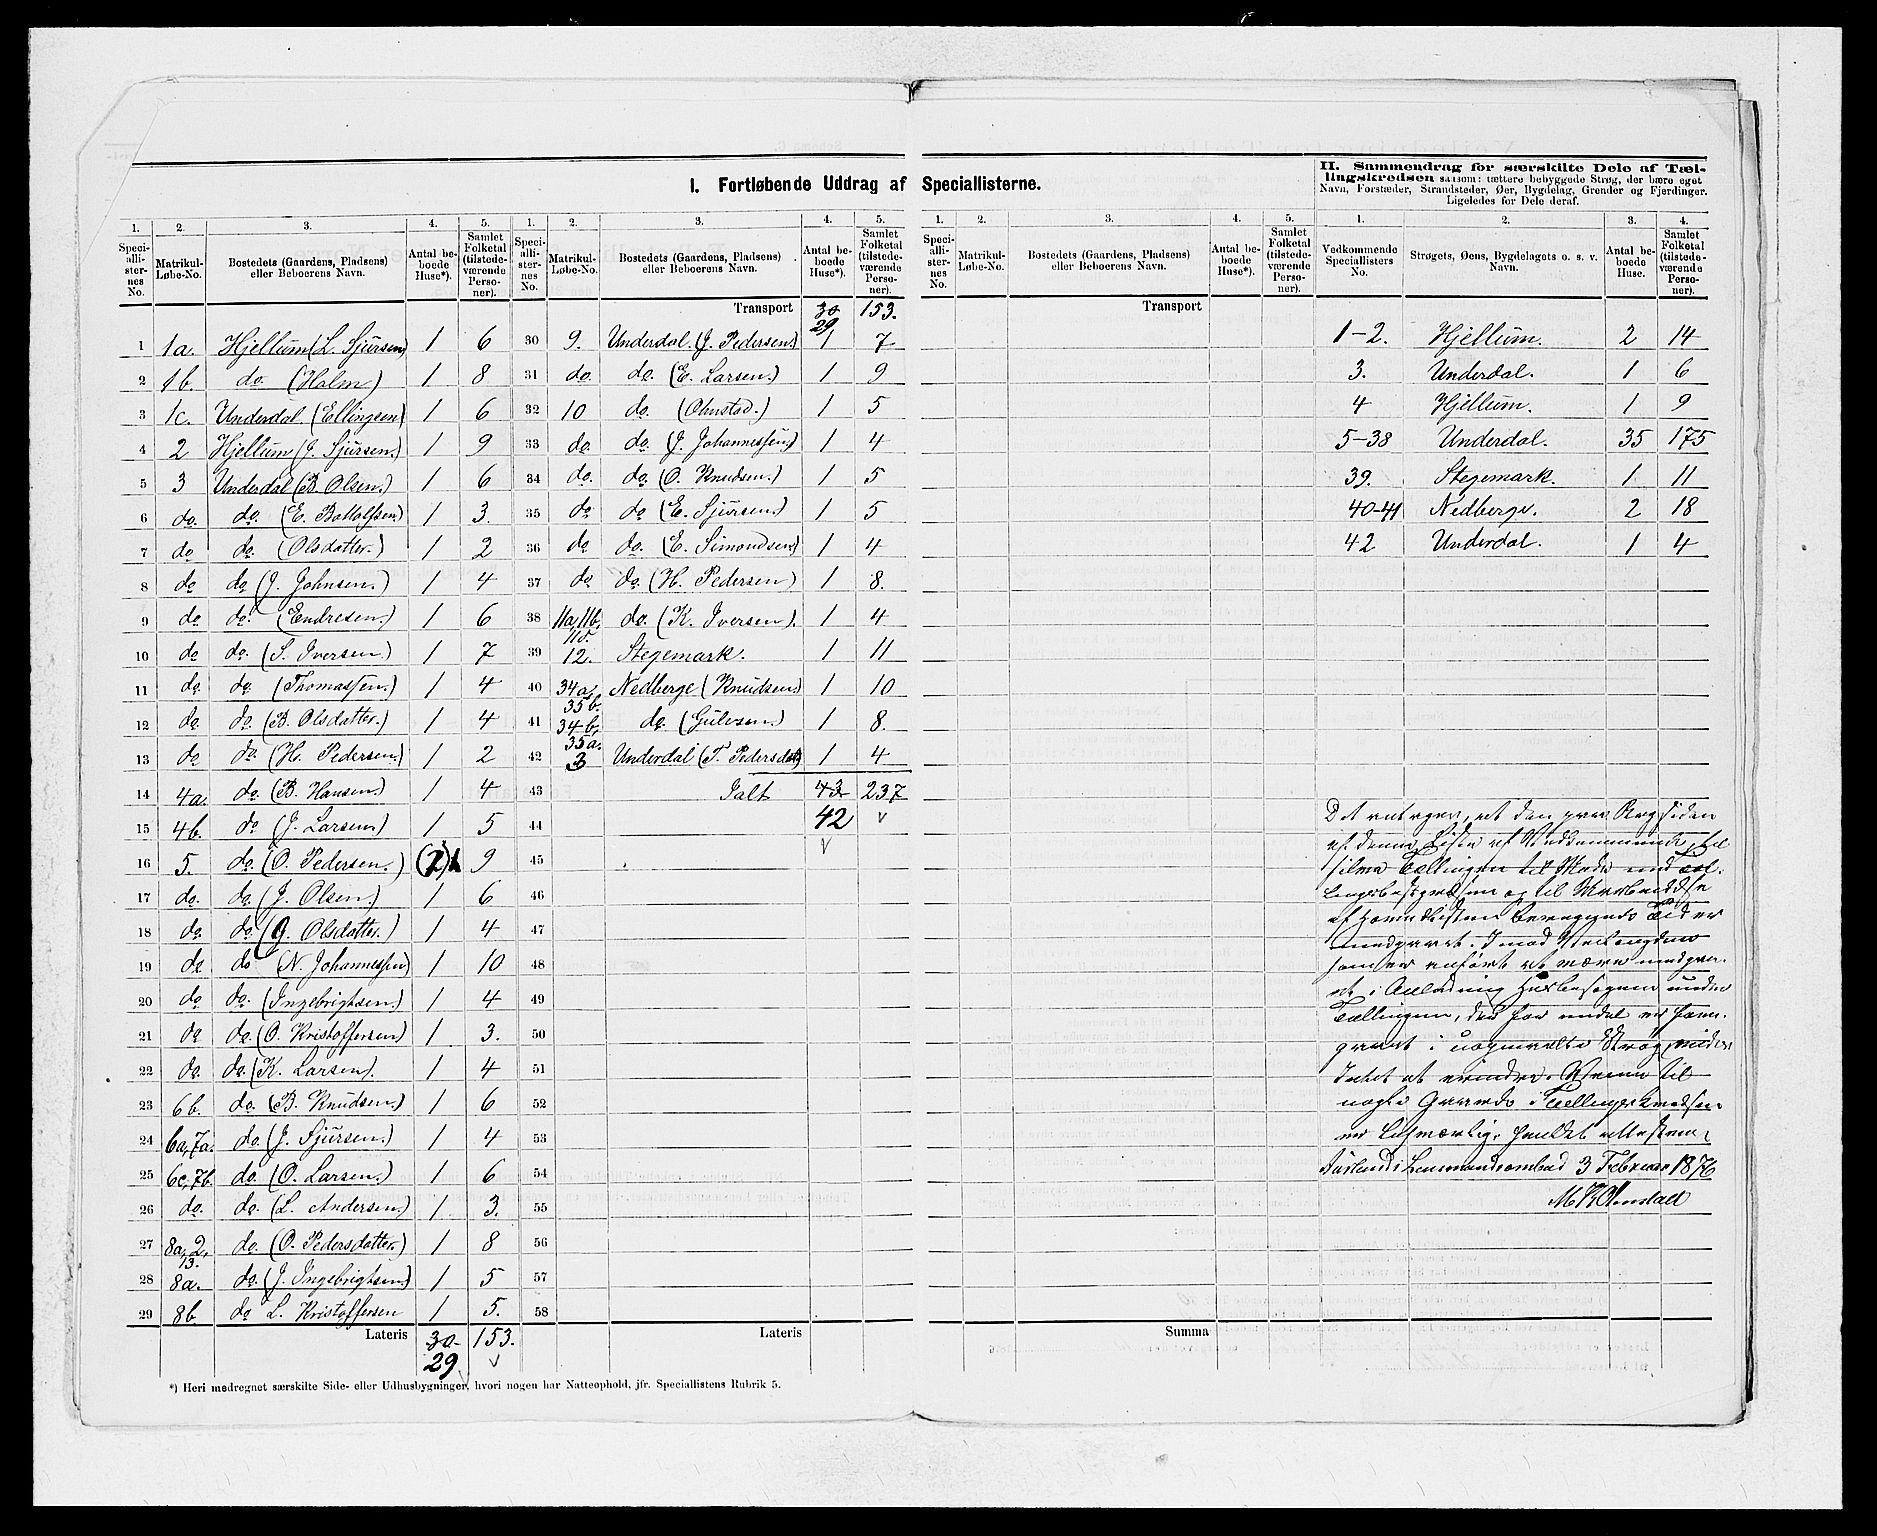 I. Fortløbende Uddrag af Speciallisterne.
II. Sammendrag for særskilte Dele af Tæl-
lingskredsen saasom: tættere bebyggede Strøg, der bære eget
Navn, Forstæder, Strandsteder, Øer, Bygdelag, Grender og Fjerdinger.
Ligeledes for Dele deraf.
1. 2. 3. 4. 5. 1. 2. 3. 4. 5. 1. 2. 3. 4. 5. 1. 2. 3. 4.
Speciallisternes No. Matrikul-Løbe-No. Bostedets (Gaardens, Pladsens) eller Beboerens Navn. Antal beboede Huse*). Samlet Folketal (tilstedeværende Personer).
Speciallisternes No. Matrikul-Løbe-No. Bostedets (Gaardens, Pladsens) eller Beboerens Navn. Antal beboede Huse*). Samlet Folketal (tilstedeværende Personer).
Speciallisternes No. Matrikul-Løbe-No. Bostedets (Gaardens, Pladsens) eller Beboerens Navn. Antal beboede Huse*). Samlet Folketal (tilstedeværende Personer).
Vedkommende Speciallisters No. Strøgets, Øens, Bygdelagets o. s. v. Navn. Antal beboede Huse. Samlet Folketal (tilstedeværende Personer).
1 1a. Hjellum (L. Sjursen) 1 6
2 1b. do (Holm) 1 8
3 1c. Underdal (Ellingsen) 1 6
4 2 Hjellum (J. Sjursen.) 1 9
5 3 Underdal (B. Olsen.) 1 6
6 do. do. (E. Botolfsen) 1 3.
7 do do. (Olsdatter.) 1 2
8 do do (J. Johnsen.) 1 4
9 do do. (Endresen.) 1 6
10 do do. (S. Iversen) 1 7
11 do. do. (Thomassen.) 1 4
12 do. do (B. Olsdatter.) 1 4
13 do do. (H. Pedersen.) 1 2
14 4a. do (B. Hansen.) 1 4
15 4b. do (J. Larsen) 1 5
16 5. do (O. Pedersen.) (2) 1 9
17 do. do (J. Olsen) 1 6
18 do do (G. Olsdatter.) 1 4
19 do do (N. Johannessen) 1 10
20 do do. (Ingebrigtsen.) 1 4
21 do do. (O. Kristoffersen) 1 3.
22 do. do. (K. Larsen). 1 4
23 6b. do. (B. Knudsen.) 1 6
24 6a, 7a. do. (J. Sjursen.) 1 4
25 6c, 7b. do. (O. Larsen.) 1 6
26 do. do. (L. Andersen.) 1 3.
27 8a, 2, 13. do. (O. Pedersdatter.) 1 8
28 8a. do. (J. Ingebrigtsen.) 1 5
29 8b. do L. Kristoffersen 1 5.
Lateris 30 153.
29
Transport 30 153.
29
30 9. Underdal. (J. Pedersen.) 1 7
31 do. do. (E. Larsen.) 1 9
32 10 do. (Ohnstad.) 1 5
33 do. do. (J. Johannessen) 1 4
34 do. do. (O. Knudsen.) 1 5
35 do do (E. Sjursen.) 1 5
36 do do. (E. Simondsen) 1 4
37 do do. (H. Pedersen) 1 8.
38 11a, 11b, 11d. do. (K. Iversen). 1 4
39 12. Stegemark. 1 11
40 34a, 35b. Nedberge (Knudsen.) 1 10
41 34b, 35a. do. (Gulesen.) 1 8.
42 3 Underdal (T. Pedersdat) 1 4
43 Ialt 43 237
44 42
45
46
47
48
49
50
51
52
53
54
55
56
57
58
Lateris
Transport
Summa
1-2. Hjellum. 2 14
3. Underdal. 1 6
4 Hjellum. 1 9
5-38 Underdal. 35 175
39. Stegemark. 1 11
40-41 Nedberge. 2 18
42 Underdal. 1 4
3 Februar 1876
M K Ohnstad
*) Heri medregnet særskilte Side- eller Udhusbygninger, hvori nogen har Natteophold, jfr. Speciallistens Rubrik 5.